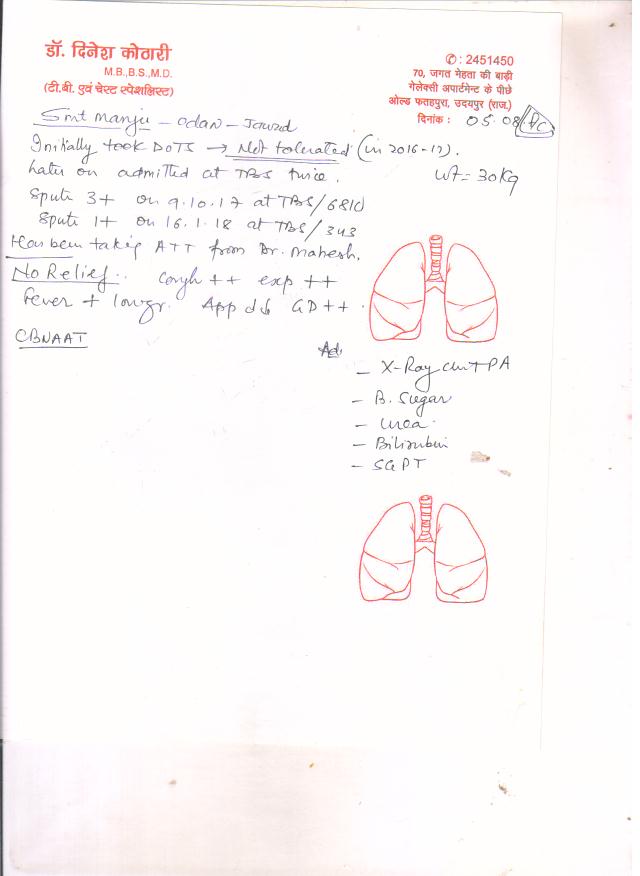 डॉ. दिनेश कोठारी
M.B.,B.S.,M.D.
(टी.बी. एवं चेस्ट स्पेशलिस्ट)
✆ : 2451450
70, जगत मेहता की बाड़ी
गेलेक्सी अपार्टमेन्ट के पीछे
ओल्ड फतहपुरा, उदयपुर (राज.)
दिनांक : 05.08
Smt Manju - Odan -
Initially took DOTS → Not tolerated (in 2016-17).
Later on admitted at TBS twice.
Wt = 30Kg
Spute 3+ on 9.10.17 at TBS/6810
Spute 1+ on 16.1.18 at TBS/343
Has been taking ATT from Dr. Mahesh.
No Relief. Cough ++ exp ++
Fever + App GD++
CBNAAT
Ad:
- X-Ray chest PA
- B. Sugar
- Urea
- Bilirubin
- SGPT